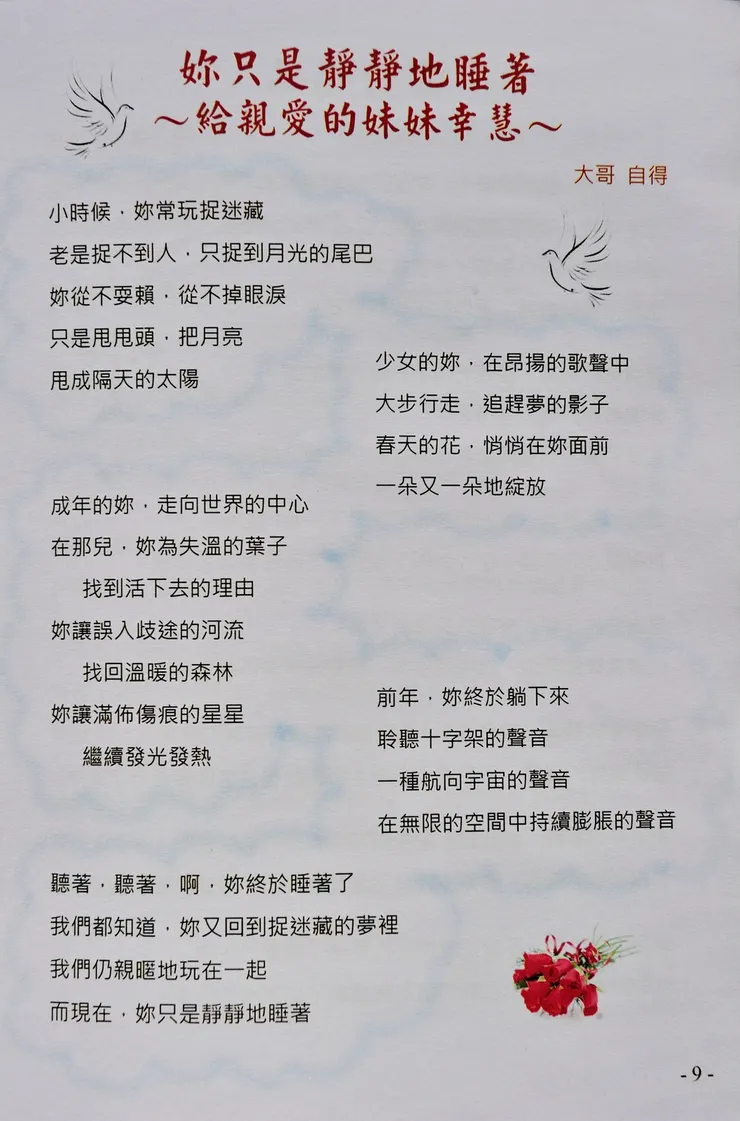 妳只是靜靜地睡著
～給親愛的妹妹幸慧～
大哥 自得
小時候，妳常玩捉迷藏
老是捉不到人，只捉到月光的尾巴
妳從不耍賴，從不掉眼淚
只是甩甩頭，把月亮
甩成隔天的太陽
少女的妳，在昂揚的歌聲中
大步行走，追趕夢的影子
春天的花，悄悄在妳面前
一朵又一朵地綻放
成年的妳，走向世界的中心
在那兒，妳為失溫的葉子
找到活下去的理由
妳讓誤入歧途的河流
找回溫暖的森林
妳讓滿佈傷痕的星星
繼續發光發熱
前年，妳終於躺下來
聆聽十字架的聲音
一種航向宇宙的聲音
在無限的空間中持續膨脹的聲音
聽著，聽著，啊，妳終於睡著了
我們都知道，妳又回到捉迷藏的夢裡
我們仍親暱地玩在一起
而現在，妳只是靜靜地睡著
- 9 -